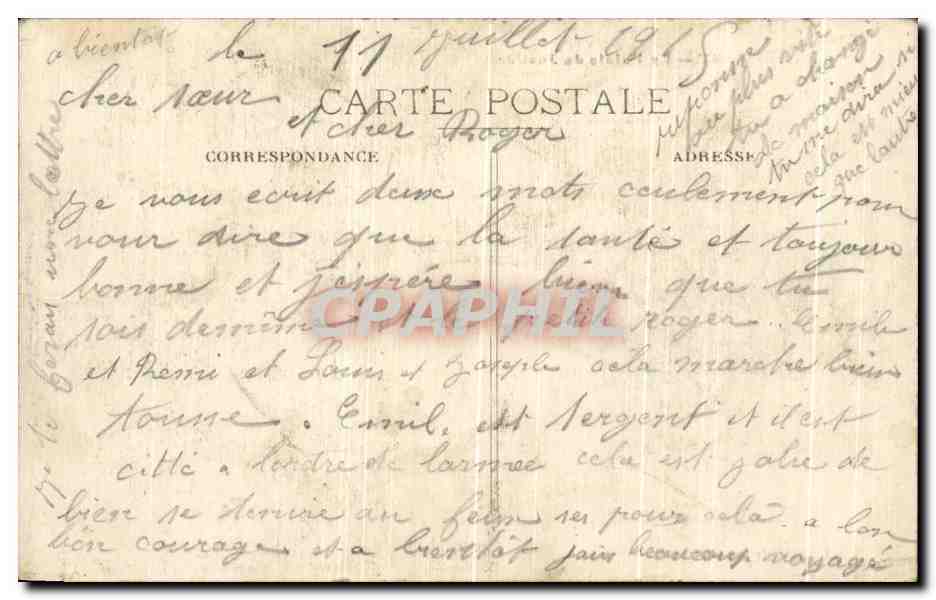 a bientôt
le 11 Juillet 1915
cher sœur
CARTE POSTALE
et cher Roger
CORRESPONDANCE
ADRESSE
Je vous ecrit deux mots ceulement pour
vour dire que la santé et toujour
bonne et j'espére bien que tu
sois demême et le petit roger.. Emile
et Remi et Louis et Joseph cela marche bien
tousse. Emil. est sergent et il est
citté a lordre de larmee cela est jolie de
bien se tenire au feux ses pour cela. a lon
bon courage et a bientôt jais beaucoup voyagé
reponse
au plus vite
tu a changé
de maison
tu me dira si
cela est mieu
que lautre
Je te ferais une lettre
CPAPHIL